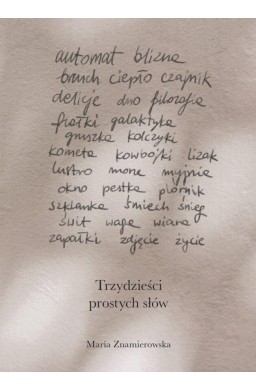 automat blizna
brzuch ciepło czajnik
delicje dno filozofia
fiołki galaktyka
gruszka kolczyki
kometa kowbojki lizak
lustro mone myjnia
okno pestka piórnik
szklanka śmiech śnieg
świt waga wiara
zapałki zdjęcie życie
Trzydzieści
prostych słów
Maria Znamierowska